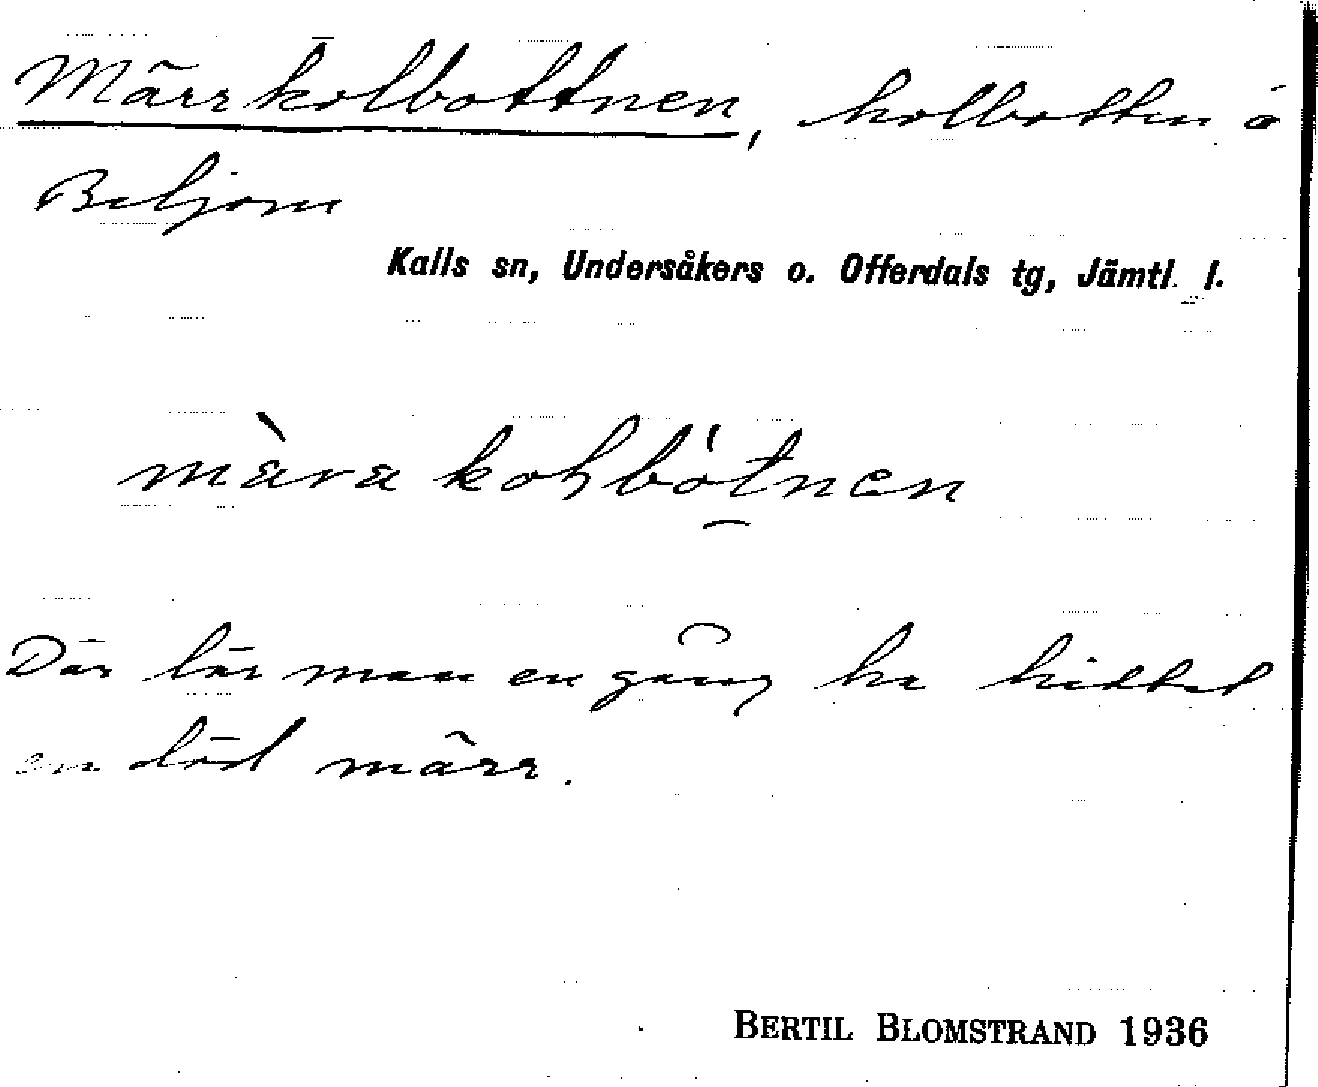 Märrkolbottnen, kolbotten å
Beljom
Kalls sn, Undersåkers o. Offerdals tg, Jämtl. l.
Där lär man en gång ha hittat
en död märr.
BERTIL BLOMSTRAND 1936